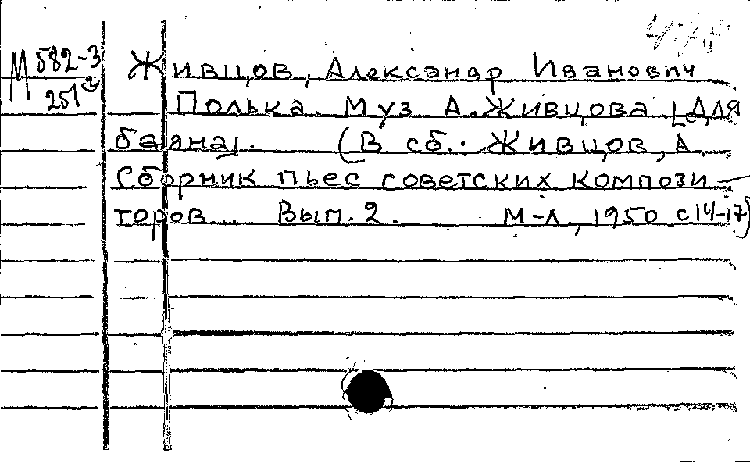 М 582-3
251
Живцов, Александр Иванович
Полька. Муз А. Живцова [Для
баяна]. (В сб.: Живцов, А.
Сборник пьес советских компози-
торов... Вып. 2. М-Л, 1950 с 14-17)